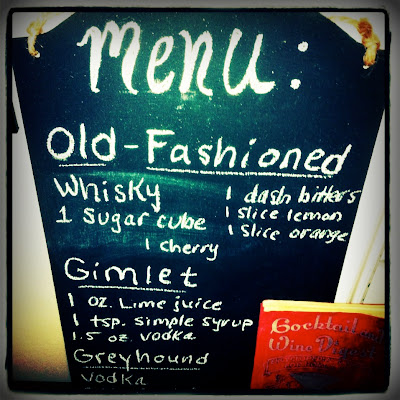 Menu:
Old-Fashioned
Whisky 1 dash bitters
1 Sugar cube 1 slice lemon
1 cherry 1 slice orange
Gimlet
1 oz. Lime juice
1 tsp. simple syrup
1.5 oz. vodka
Greyhound
Vodka
Cocktail and
Wine Digest